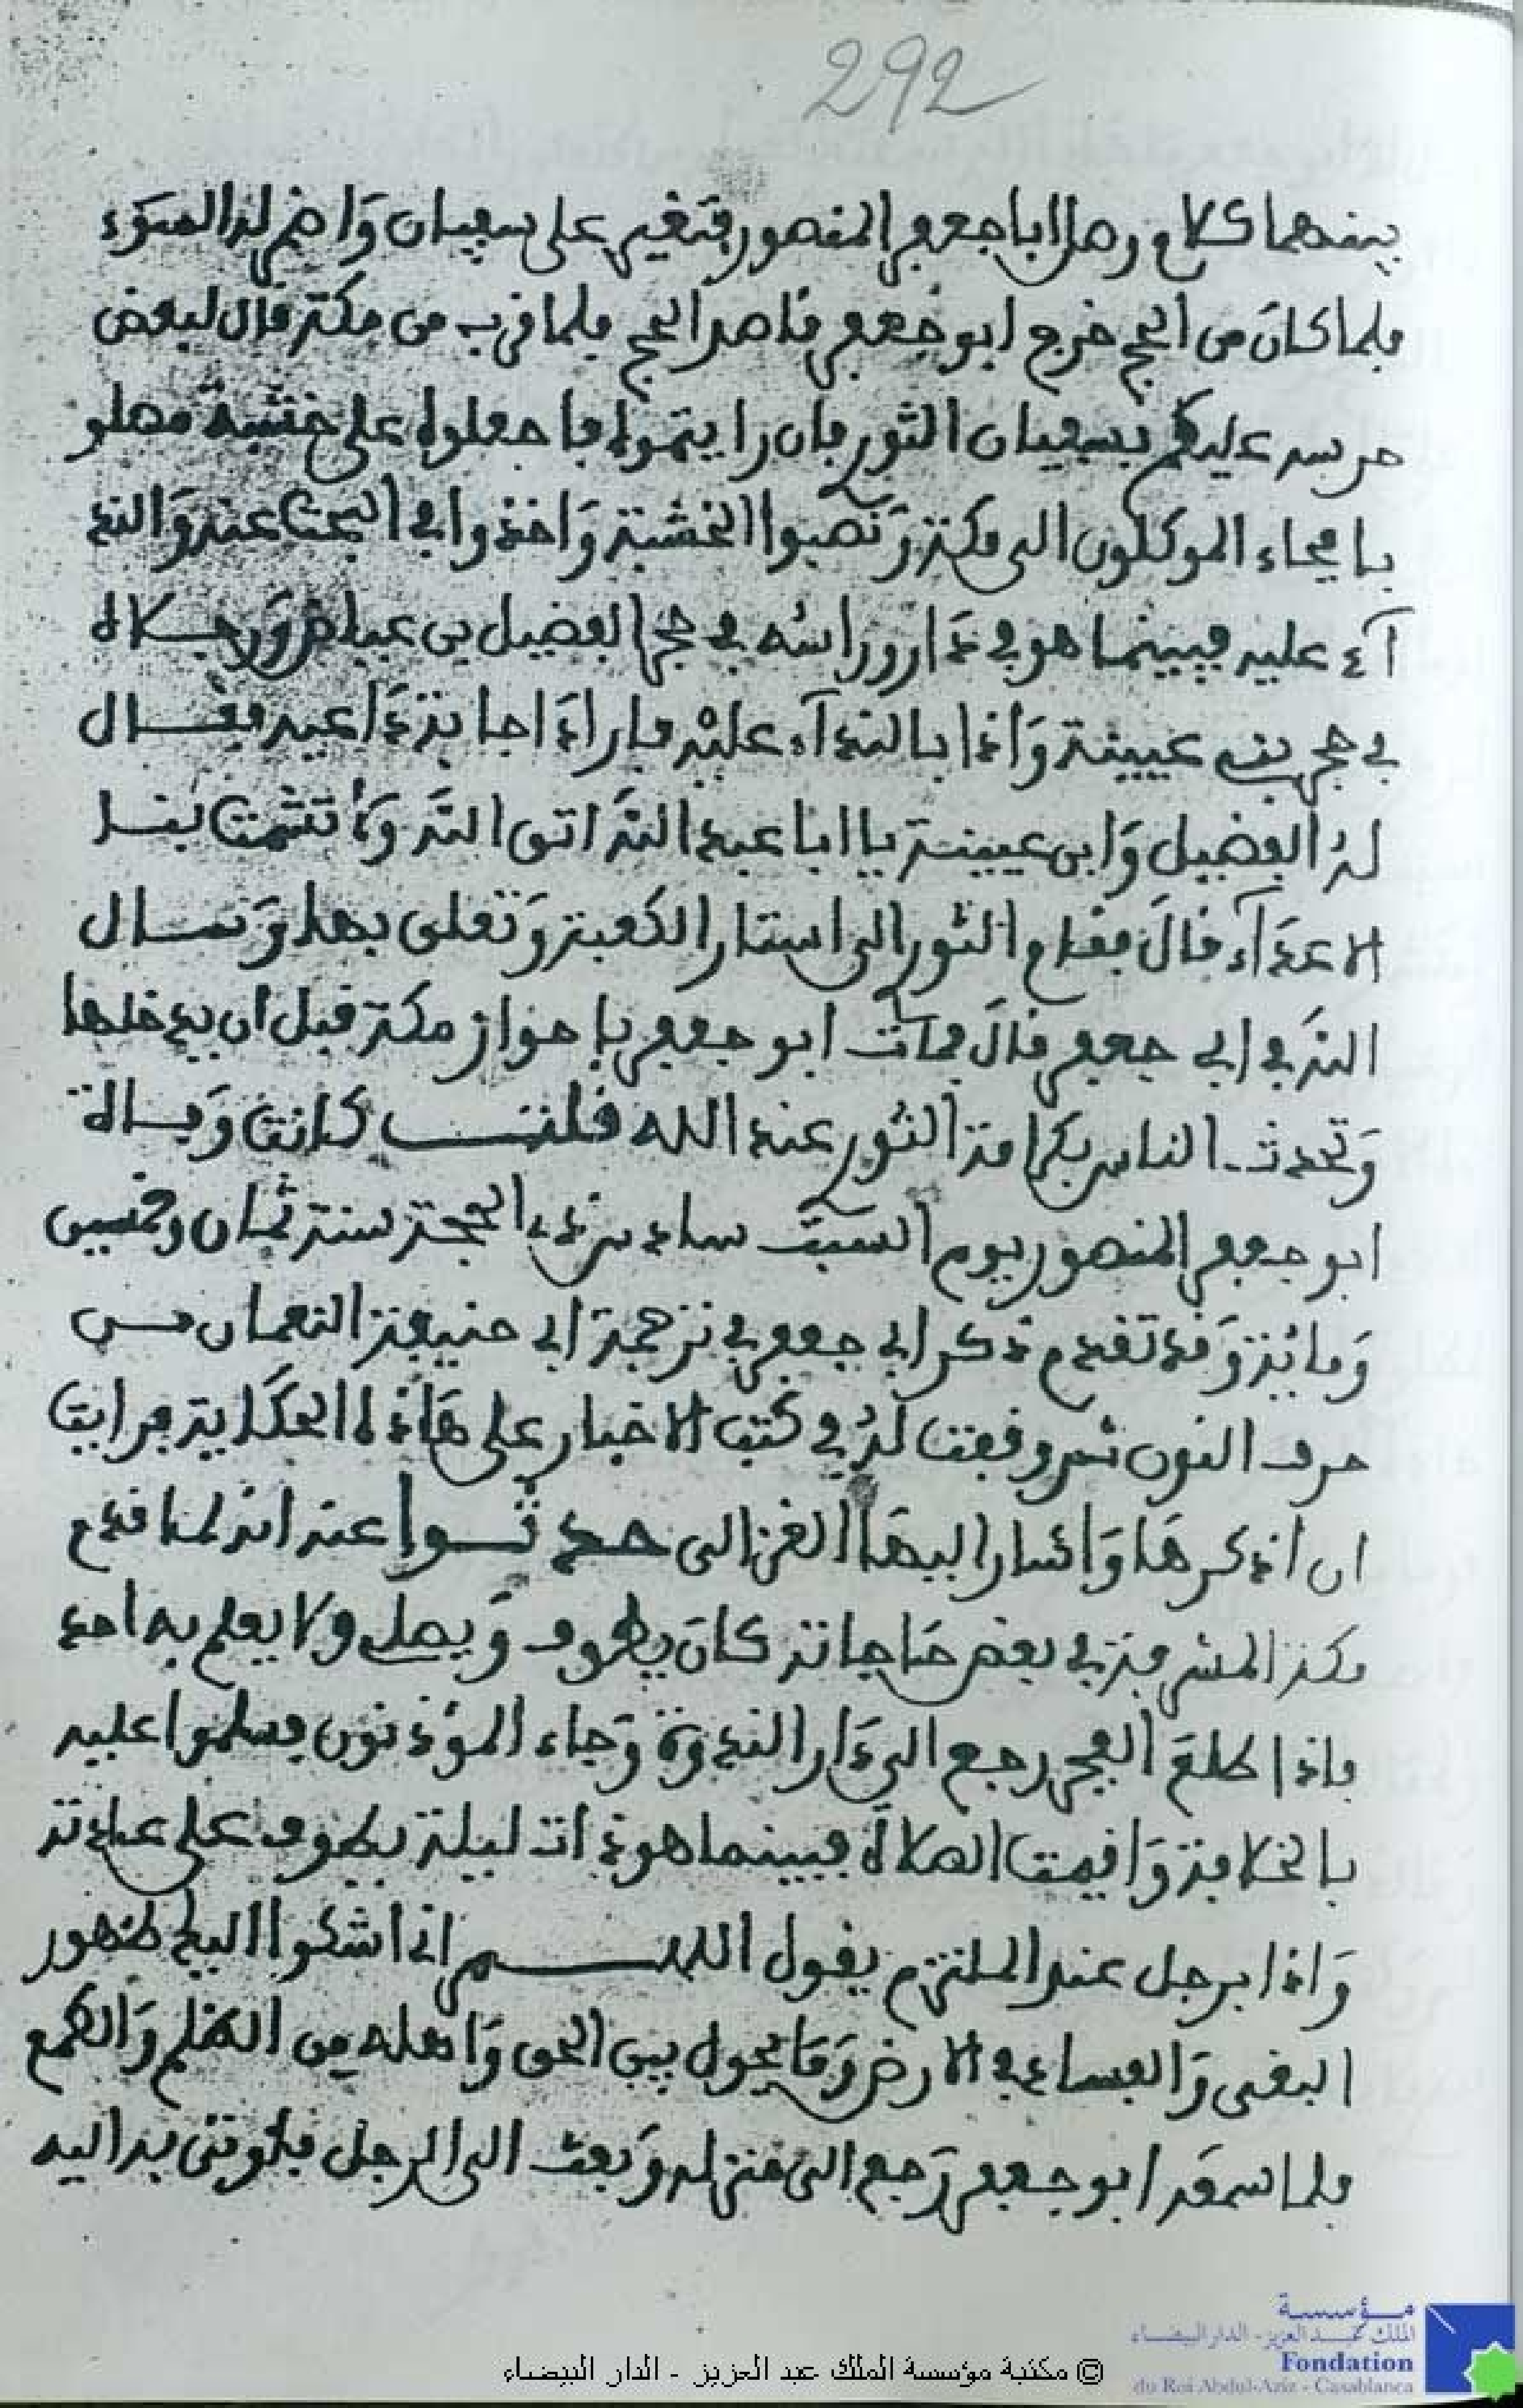 292
بينهما كلام وصل ابا جعفر المنصور فتغير على سفيان وَاضمر له السوء
فلما كان من الحج خرج ابو جعفر قاصد الحج فلما قرب من مكة قال لبعض
حرسه عليكم بسفيان الثوري فان رايتموه فاجعلوه على خشبة مصلو
با فجاء الموكلون الى مكة وَنصبوا الخشبة وَاخذوا في البحث عنه وَالند
آء عليه فبينما هو في دار وراسه في حجر الفضيل بن عياض وَرجلاه
في حجر بن عيينة وَاذا بالندآء عليْه فاراد اجابة داعيه فقال
لهُ الفضيل وَابن عيينة يا ابا عبد الله اتق الله وَلا تشمت بنا
الاعدآء قالَ فقام الثوري الى استار الكعبة وَتعلق بها وَسال
الله في ابي جعفر قالَ فمات ابو جعفر باحواز مكة قبل ان يدخلها
وَتحدث الناس بكرامة الثوري عند الله قلت كانت وَفاة
ابو جعفر المنصور يوم السبت سادس ذي الحجة سنة ثمان وخمسين
وَمائة وَقد تقدم ذكر ابي جعفر في ترجمة ابي حنيفة النعمان من
حرف النون ثم وقفت لهُ في كتب الاخبار على هَاذه الحكاية فرايت
ان اذكرهَا وَاشار اليهَا الغزالى حدثوا عنه انه لما قدم
مكة المشرفة في بعض حاجاته كانَ يطوف وَيصلى ولا يعلم به احد
فاذا طلع الفجر رجع الى دار الندوة وَجاء المؤذنون فسلموا عليه
بالخلافة وَاقيمت الصلاة فبينما هو ذات ليلة يطوف على عادته
وَاذا برجل عند الملتزم يقول اللهم اني اشكوا اليك ظهور
البغى وَالفساد في الارض وَمَا يحول بين الحق وَاهله من الظلم وَالطمع
فلما سمعه ابو جعفر رَجع الى منزله وَبعث الى الرجل فاوتى به اليه
مؤسسة
الملك عبد العزيز - الدار البيضاء
Fondation
du Roi Abdul-Aziz - Casablanca
© مكتبة مؤسسة الملك عبد العزيز - الدار البيضاء